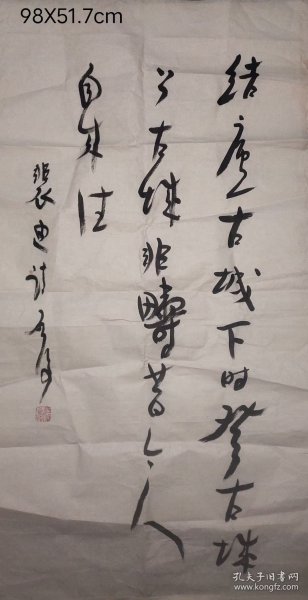 98X51.7cm
结庐古城下时登古城
上古城非畴昔今人
自来往
裴迪诗
孔夫子旧书网